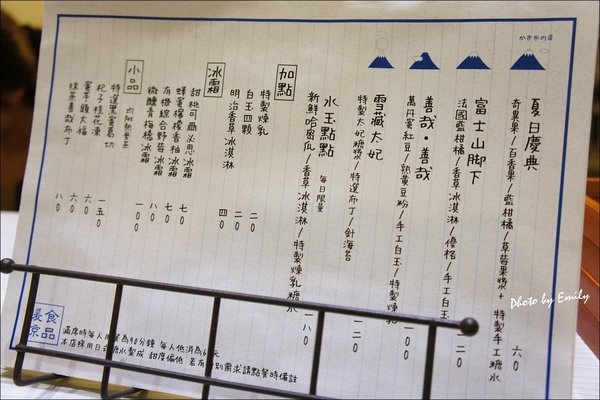 かき氷の店
夏日慶典
奇異果/百香果/藍柑橘/草莓果漿+特製手工糖水 六0
富士山脚下
法國藍柑橘/香草冰淇淋/優格/手工白玉 二0
善哉·善哉
萬丹蜜紅豆/熟黃豆粉/手工白玉/特製煉乳 一00
雪藏太妃
特製太妃糖漿/特選布丁/針海苔 一二0
水玉點點 每日限量
新鮮哈密瓜/香草冰淇淋/特製煉乳糖水 一八0
加點
特製煉乳
白玉四顆 二0
明治香草冰淇淋 二0
四0
冰霜
甜桃可爾必思冰霜 七0
蜂蜜檸檬香柚冰霜 七0
有機綜合野莓冰霜 八0
微醺青梅橘冰霜 一00
小品 均附熱麥茶
特選黑蜜葛切 一五0
杞子桂花凍 六0
蜜芋頭大福 六0
抹茶喜歡布丁 八0
食品
暖京
滿席時每人用餐為90分鐘 每人低消為6 元
本店採用日 糖水製成 甜度偏低 若有 別需求請點餐時備註
Photo by Emily